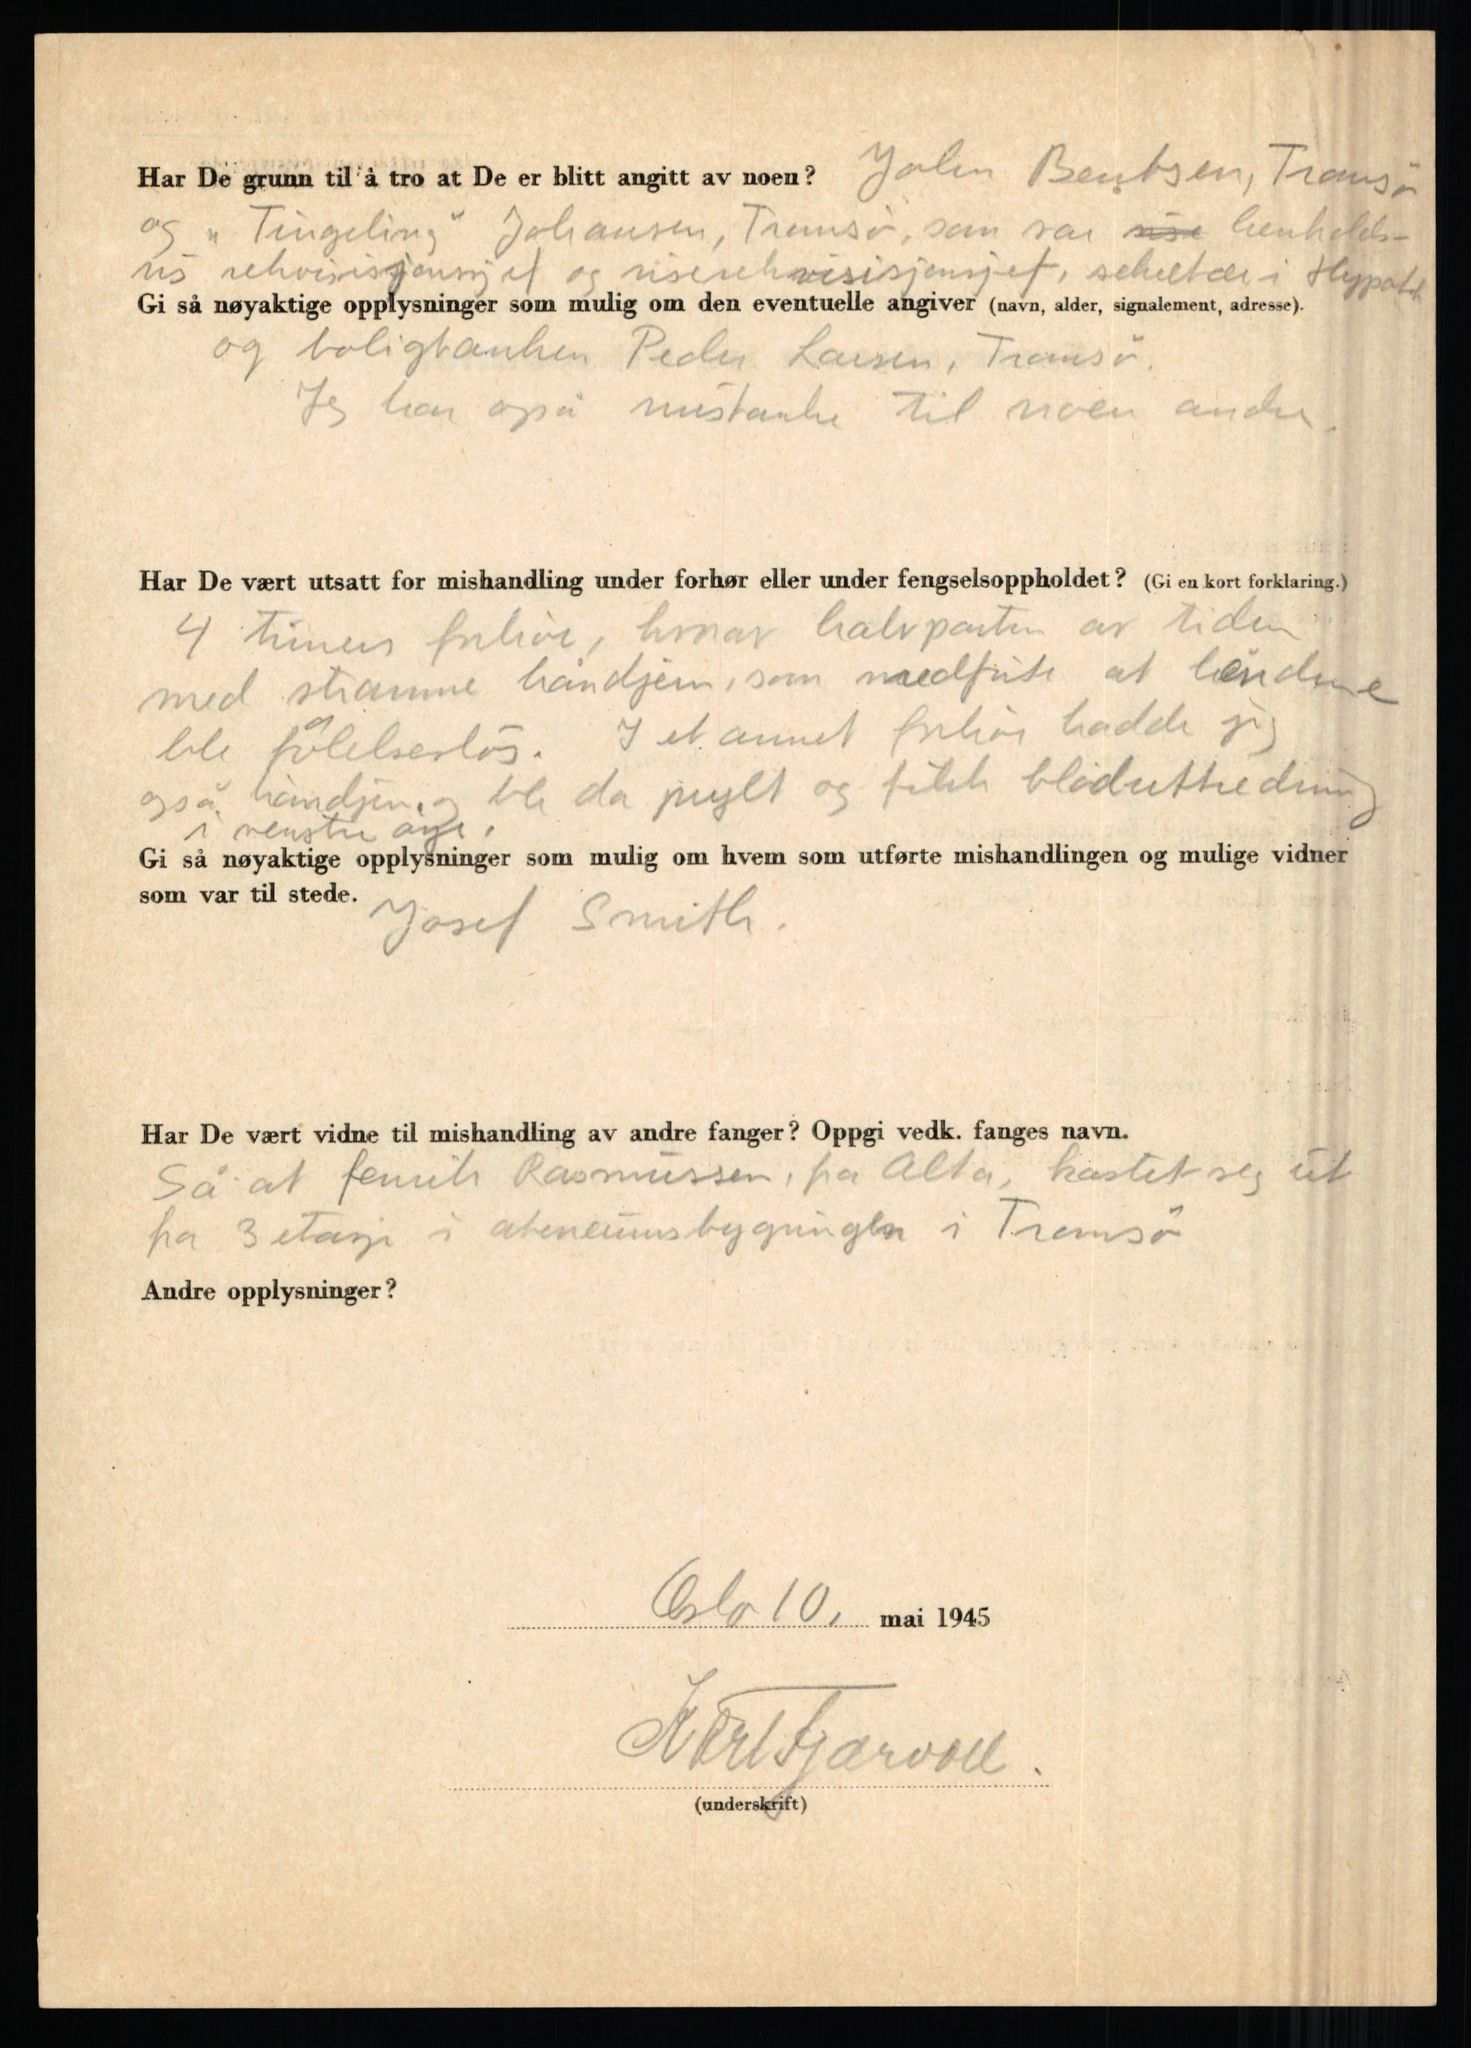 Har De grunn til å tro at De er blitt angitt av noen? John Bentsen, Tromsø
og „Tingeling" Johansen, Tromsø, som var henholds-
vis rekvisisjonssjef og viserekvisisjonsjef, sekretær i Hypotek
Gi så nøyaktige opplysninger som mulig om den eventuelle angiver (navn, alder, signalement, adresse).
og boligbanken Peder Larsen, Tromsø.
Jeg har også mistanke til noen andre.
Har De vært utsatt for mishandling under forhør eller under fengselsoppholdet? (Gi en kort forklaring.)
4 timers forhør, hvorav halvparten av tiden
med stramme håndjern, som medførte at hendene
ble følelsesløs. I et annet forhør hadde jeg
også håndjern, og ble da prylt og fikk bloduttredning
i venstre øye.
Gi så nøyaktige opplysninger som mulig om hvem som utførte mishandlingen og mulige vidner
som var til stede. Josef Smith.
Har De vært vidne til mishandling av andre fanger? Oppgi vedk. fanges navn.
Så at Rasmussen, fra Alta, kastet seg ut
fra 3 etasje i ateneumsbygningen i Tromsø
Andre opplysninger?
Oslo 10. mai 1945
Kåre Fjærvoll.
(underskrift)